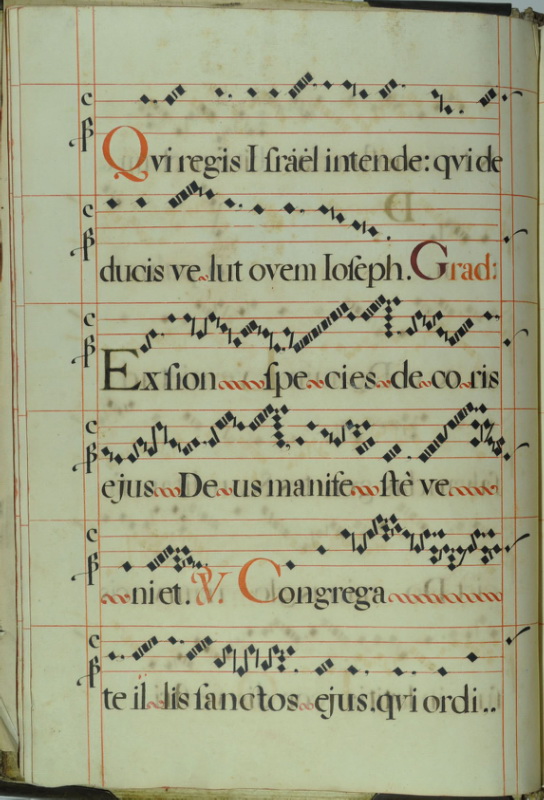 Qvi regis I sráël intende: qvi de
ducis ve lut ovem Ioseph. Grad:
Ex sion spe cies de co ris
ejus De us manife stè ve
ni et. ℣. Congrega
te il lis sanctos ejus. qvi ordi..